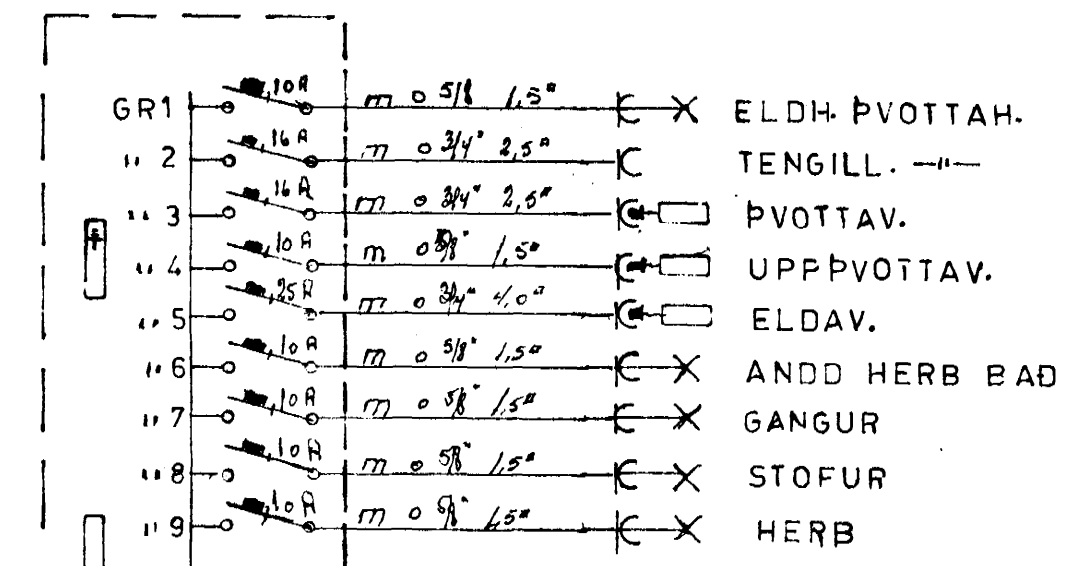 GR1 10A m o 5/8 1,5" ELDH. ÞVOTTAH.
" 2 16A m o 3/4" 2,5" TENGILL. —"—
" 3 16A m o 3/4" 2,5" ÞVOTTAV.
" 4 10A m o 5/8" 1,5" UPPÞVOTTAV.
" 5 25A m o 3/4" 4,0" ELDAV.
" 6 10A m o 5/8" 1,5" ANDD HERB BAÐ
" 7 10A m o 5/8" 1,5" GANGUR
" 8 10A m o 5/8" 1,5" STOFUR
" 9 10A m o 5/8" 1,5" HERB